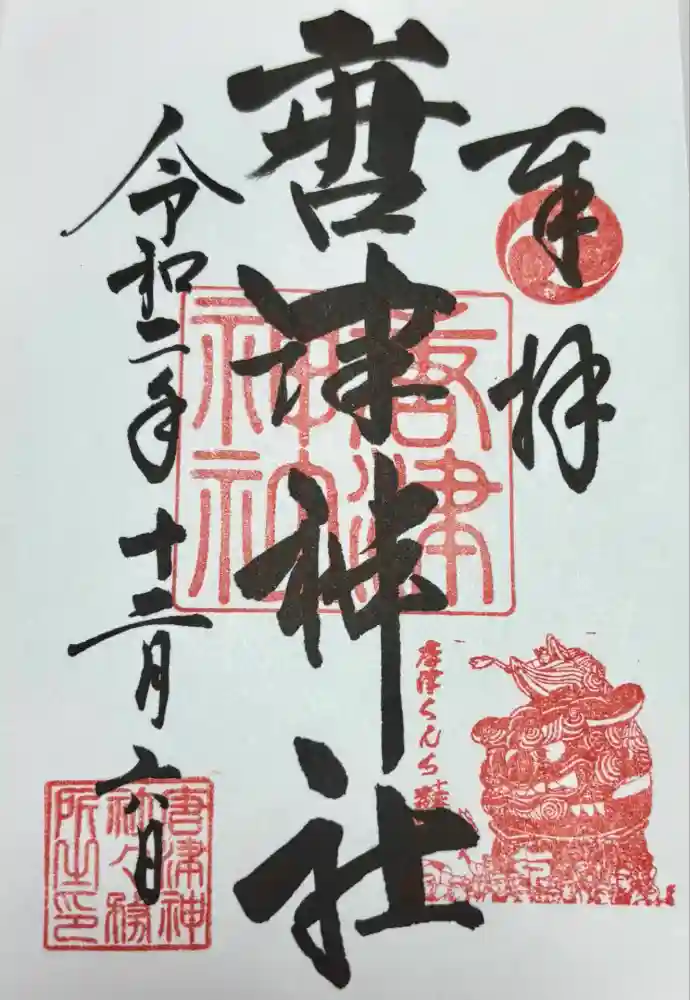 奉拝
唐津神社
令和二年十二月六日
唐津
神社
唐津くんち
唐津神
社々務
所之印